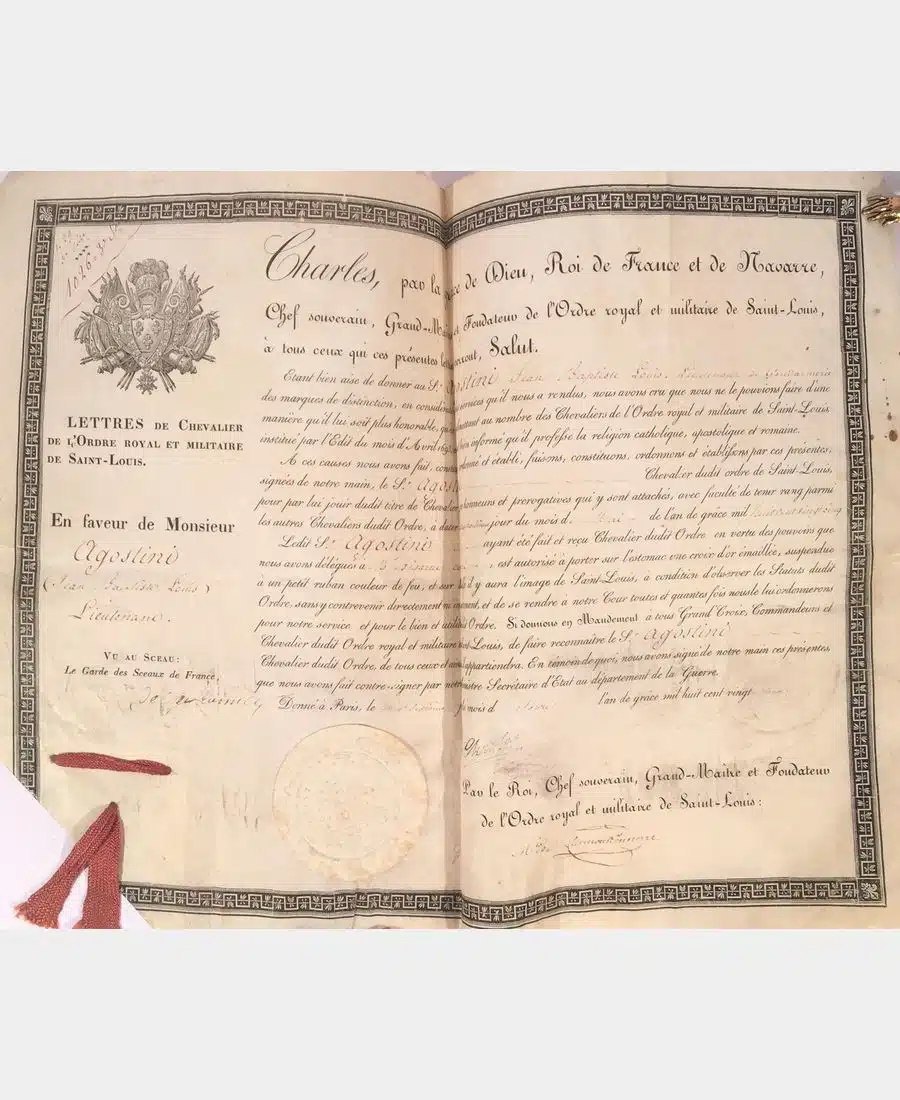 1026
LETTRES DE CHEVALIER
DE L'ORDRE ROYAL ET MILITAIRE
DE SAINT-LOUIS.
En faveur de Monsieur
Agostini
(Jean Baptiste Louis)
Lieutenant.
VU AU SCEAU:
Le Garde des Sceaux de France,
Charles, par la ce de Dieu, Roi de France et de Navarre,
Chef souverain, Grand-Maî et Fondateur de l'Ordre royal et militaire de Saint-Louis,
à tous ceux qui ces présentes verront, Salut.
Etant bien aise de donner au Sr. Agostini Jean Baptiste Louis, Lieutenant de Gendarmerie
des marques de distinction, en considéra services qu'il nous a rendus, nous avons cru que nous ne le pouvions faire d'une
manière qu'il lui soit plus honorable, qu' mettant au nombre des Chevaliers de l'Ordre royal et militaire de Saint-Louis,
institué par l'Edit du mois d'Avril informé qu'il professe la religion catholique, apostolique et romaine.
A ces causes nous avons fait, cons et établi, faisons, constituons, ordonnons et établissons par ces présentes,
signées de notre main, le Sr. Agostini Chevalier dudit ordre de Saint-Louis,
pour par lui jouir dudit titre de Chevalier honneurs et prérogatives qui y sont attachés, avec faculté de tenir rang parmi
les autres Chevaliers dudit Ordre, à dater jour du mois d de l'an de grâce mil
Ledit Sr. Agostini ayant été fait et reçu Chevalier dudit Ordre en vertu des pouvoirs que
nous avons délégués à est autorisé à porter sur l'estomac une croix d'or émaillée, suspendue
à un petit ruban couleur de feu, et sur il y aura l'image de Saint-Louis, à condition d'observer les Statuts dudit
Ordre, sans y contrevenir directement ni ment, et de se rendre à notre Cour toutes et quantes fois nous le lui ordonnerons
pour notre service et pour le bien et utilité d'Ordre. Si donnons en Mandement à tous Grand'Croix, Commandeurs et
Chevalier dudit Ordre royal et militaire Saint-Louis, de faire reconnaitre le Sr. Agostini
Chevalier dudit Ordre, de tous ceux et ainsi appartiendra. En témoin de quoi, nous avons signé de notre main ces présentes,
que nous avons fait contre-signer par notre Ministre Secrétaire d'Etat au département de la Guerre.
Donné à Paris, le mois d l'an de grâce mil huit cent vingt
Par le Roi, Chef souverain, Grand-Maître et Fondateur
de l'Ordre royal et militaire de Saint-Louis: